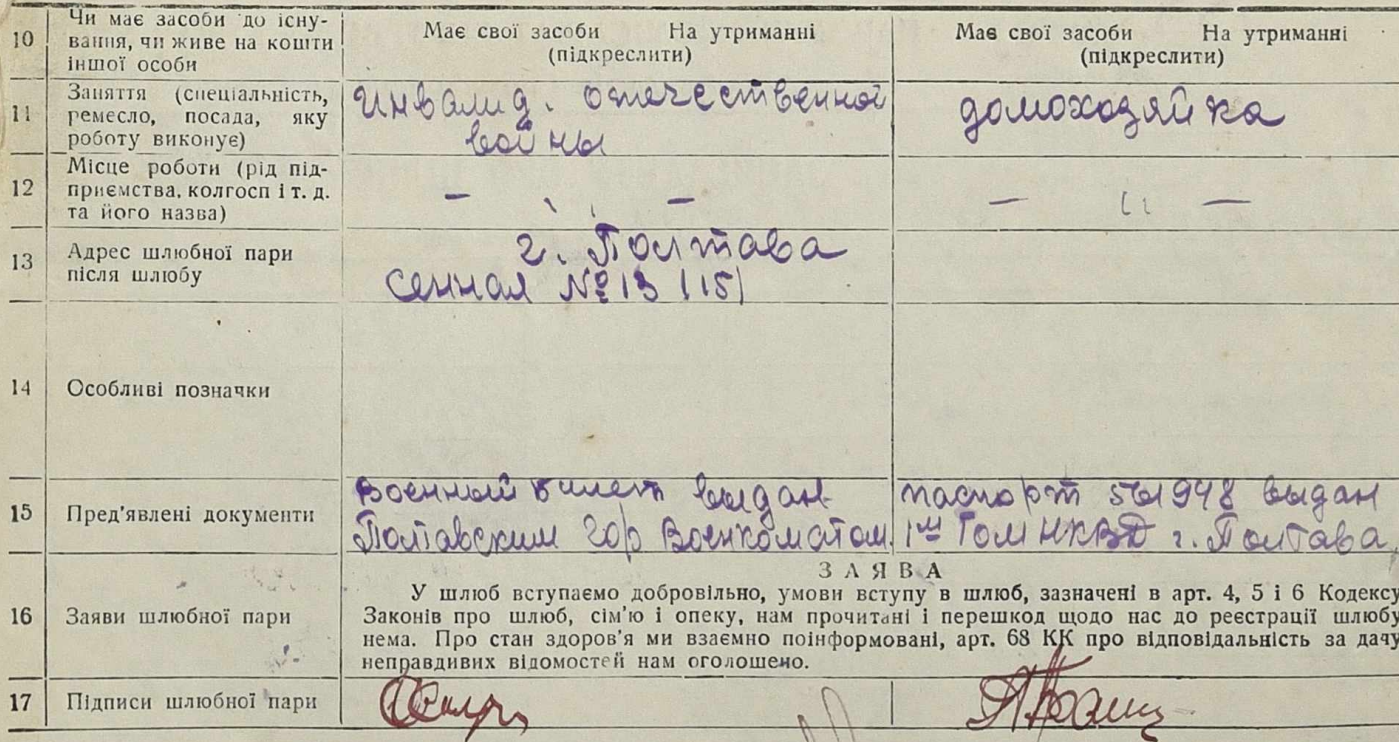 10 Чи має засоби до існу-
вання, чи живе на кошти
іншої особи
Має свої засоби На утриманні
(підкреслити)
Має свої засоби На утриманні
(підкреслити)
11 Заняття (спеціальність,
ремесло, посада, яку
роботу виконує)
Инвалид. отечественной
войны
домохозяйка
12 Місце роботи (рід під-
приємства, колгосп і т. д.
та його назва)
— ,, —
— ,, —
13 Адрес шлюбної пари
після шлюбу
г. Полтава
Сенная № 13 (15)
14 Особливі позначки
15 Пред'явлені документи
Военный билет выдан
Полтавским Гор Военкоматом.
паспорт 561948 выдан
1м ГОМ НКВД г. Полтава
16 Заяви шлюбної пари
ЗАЯВА
У шлюб вступаємо добровільно, умови вступу в шлюб, зазначені в арт. 4, 5 і 6 Кодексу
Законів про шлюб, сім'ю і опеку, нам прочитані і перешкод щодо нас до реєстрації шлюбу
нема. Про стан здоров'я ми взаємно поінформовані, арт. 68 КК про відповідальність за дачу
неправдивих відомостей нам оголошено.
17 Підписи шлюбної пари